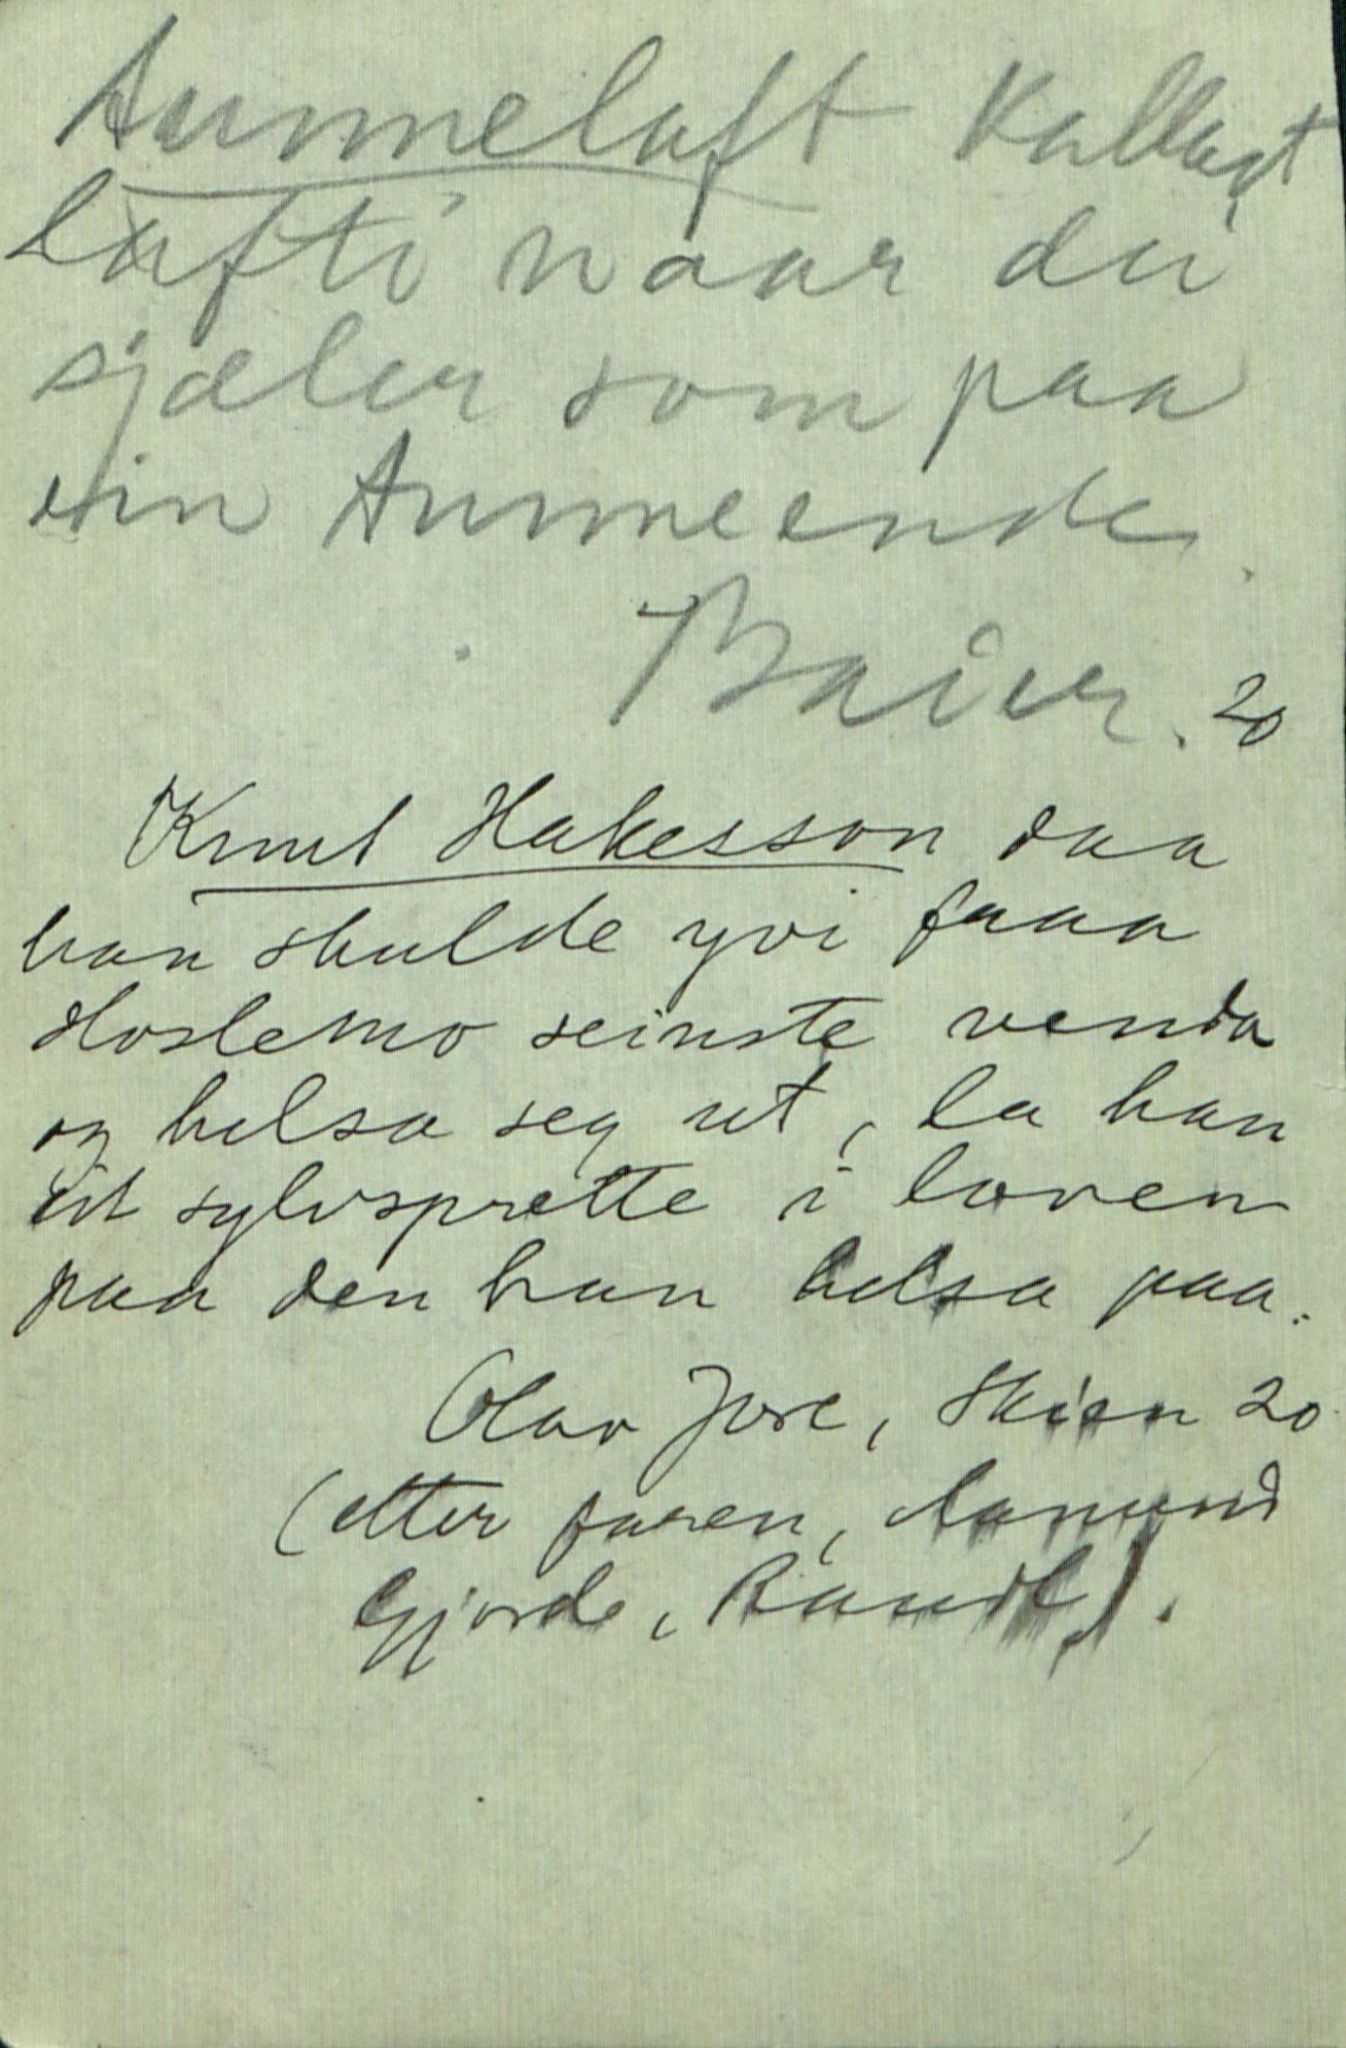 Aunneluft kallast
lufti naar dei
sjæler som paa
ein Aunneende.
Baier. 20
Knut Hakesson daa
han skulde yvi fraa
Hoslemo seinste venda
og helsa seg ut, la han
eit sylvsprette i loven
paa den han helsa paa.
Olav Jore, Skien 20
(etter faren, Aamund
Gjorde, Raudl).